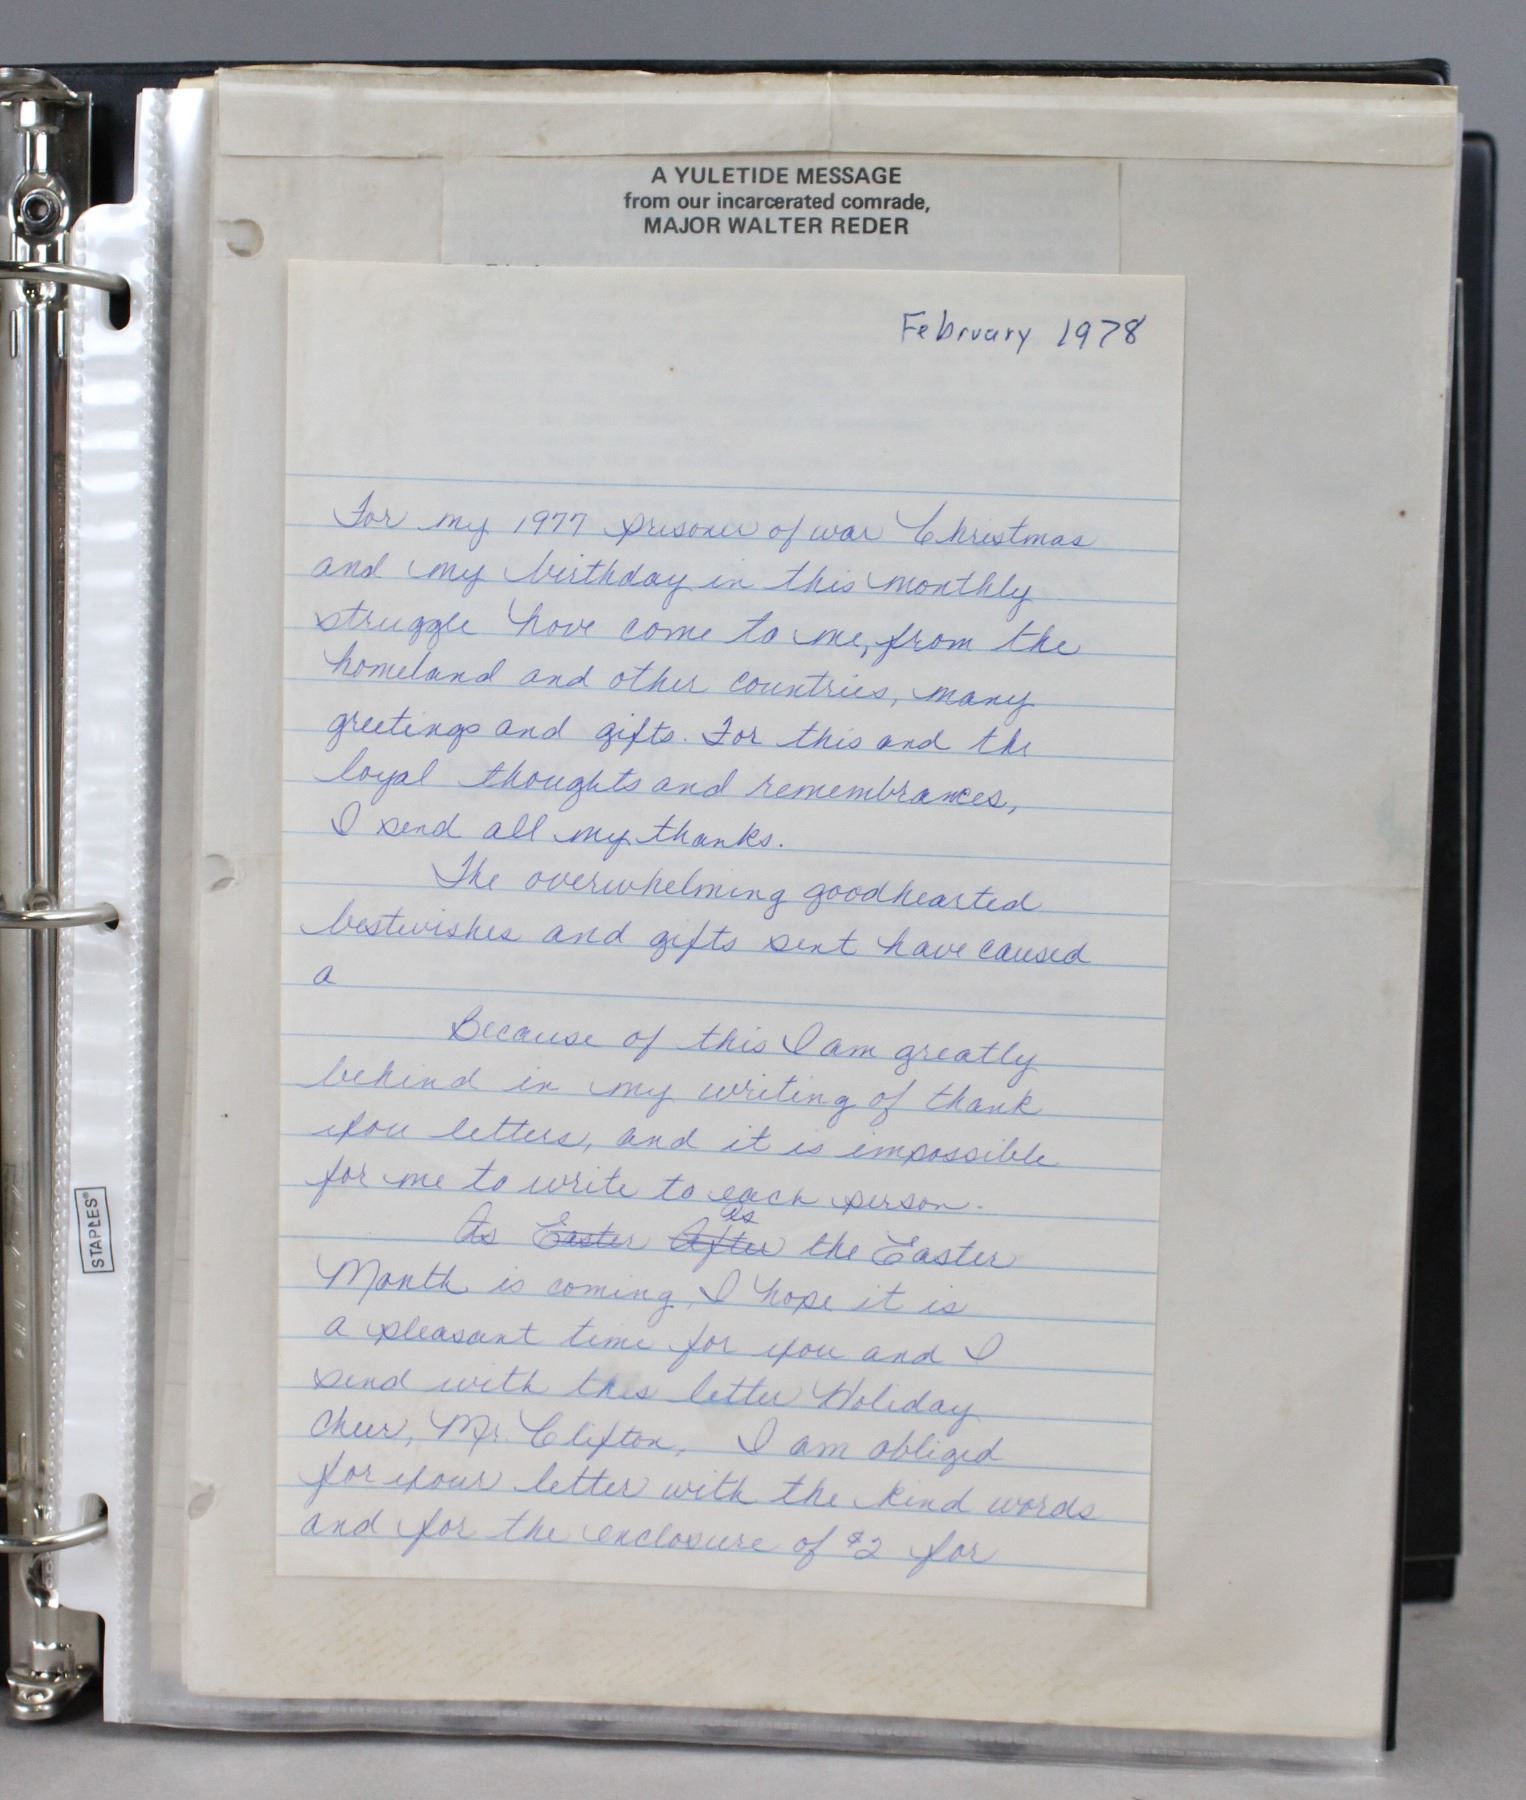 A YULETIDE MESSAGE
from our incarcerated comrade,
MAJOR WALTER REDER
February 1978
For my 1977 prisoner of war Christmas
and my birthday in this monthly
struggle have come to me, from the
homeland and other countries, many
greetings and gifts. For this and the
loyal thoughts and remembrances,
I send all my thanks.
The overwhelming goodhearted
bestwishes and gifts sent have caused
a
Because of this I am greatly
behind in my writing of thank
you letters, and it is impossible
for me to write to each person.
As Easter After as the Easter
Month is coming, I hope it is
a pleasant time for you and I
send with this letter Holiday
Cheer, Mr. Clifton, I am obliged
for your letter with the kind words
and for the enclosure of $2 for
STAPLES®